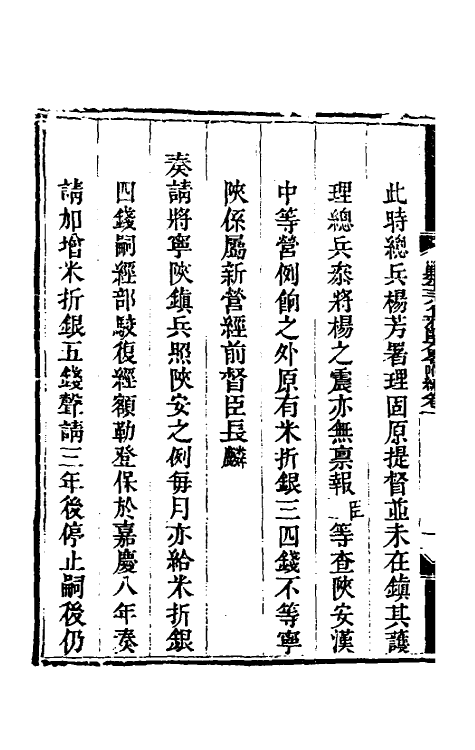 此時總兵楊芳署理固原提督並未在鎮其護
理總兵叅將楊之震亦無禀報臣等查陜安漢
中等營例餉之外原有米折銀三四錢不等寧
陜係屬新營經前督臣長麟
奏請將寧陜鎮兵照陜安之例每月亦給米折銀
四錢嗣經部駮復經額勒登保於嘉慶八年奏
請加增米折銀五錢聲請三年後停止嗣後仍